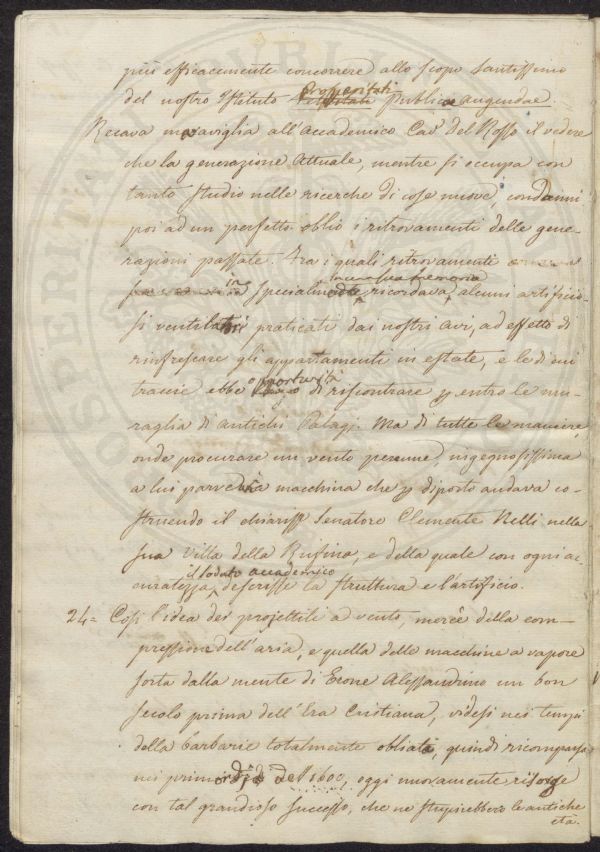 più efficacemente concorrere allo scopo santissimo
del nostro Istituto Prosperitati publicae augendae.
Recava maraviglia all'Accademico Cav.r Del Rosso il vedere
che la generazione Attuale, mentre si occupa con
tanto studio nelle ricerche di cose nuove, condanni
poi ad un perfetto oblio i ritrovamenti delle gene-
razioni passate. Fra i quali ritrovamenti
in specialmente ricordava alcuni artificio-
si ventilatori praticati dai nostri avi, ad effetto di
rinfrescare gli appartamenti in estate, e le di cui
traccie ebbe opportunità di riscontrare p entro le mu-
raglia di antichi Palagj. Ma di tutte le maniere,
onde procurare un vento perenne, ingegnosissima
a lui parve la macchina che p diporto andava co-
struendo il chiariss Senatore Clemente Nelli nella
sua villa della Rufina, e della quale con ogni ac-
curatezza il lodato accademico descrisse la struttura e l'artificio.
24= Così l'idea dei projettili a vento, mercè della com-
pressione dell'aria, e quella delle macchine a vapore
sorta dalla mente di Erone Alessandrino un bon
secolo prima dell'Era Cristiana, videsi nei tempi
della barbarie totalmente obliata, quindi ricomparsa
nei primordj del 1600, oggi nuovamente risorge
con tal grandioso successo, che ne stupirebbero le antiche
età.